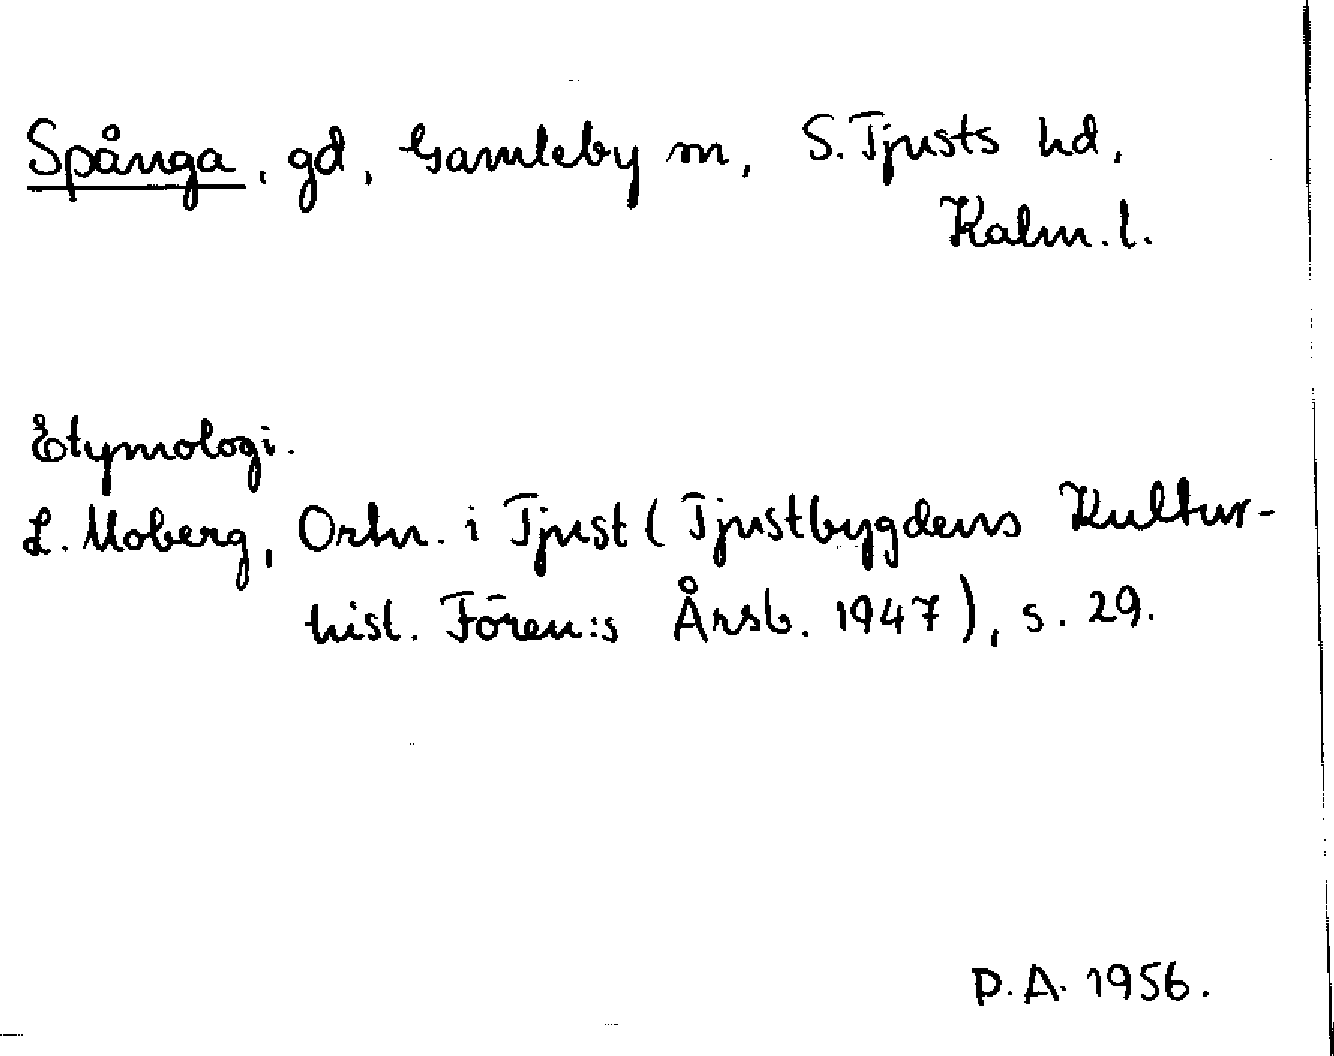 Spånga, gd, Gamleby sn, S. Tjusts hd,
Kalm. l.
Etymologi.
L. Moberg, Ortn. i Tjust (Tjustbygdens Kultur-
hist. Fören:s Årsb. 1947), s. 29.
D.A. 1956.